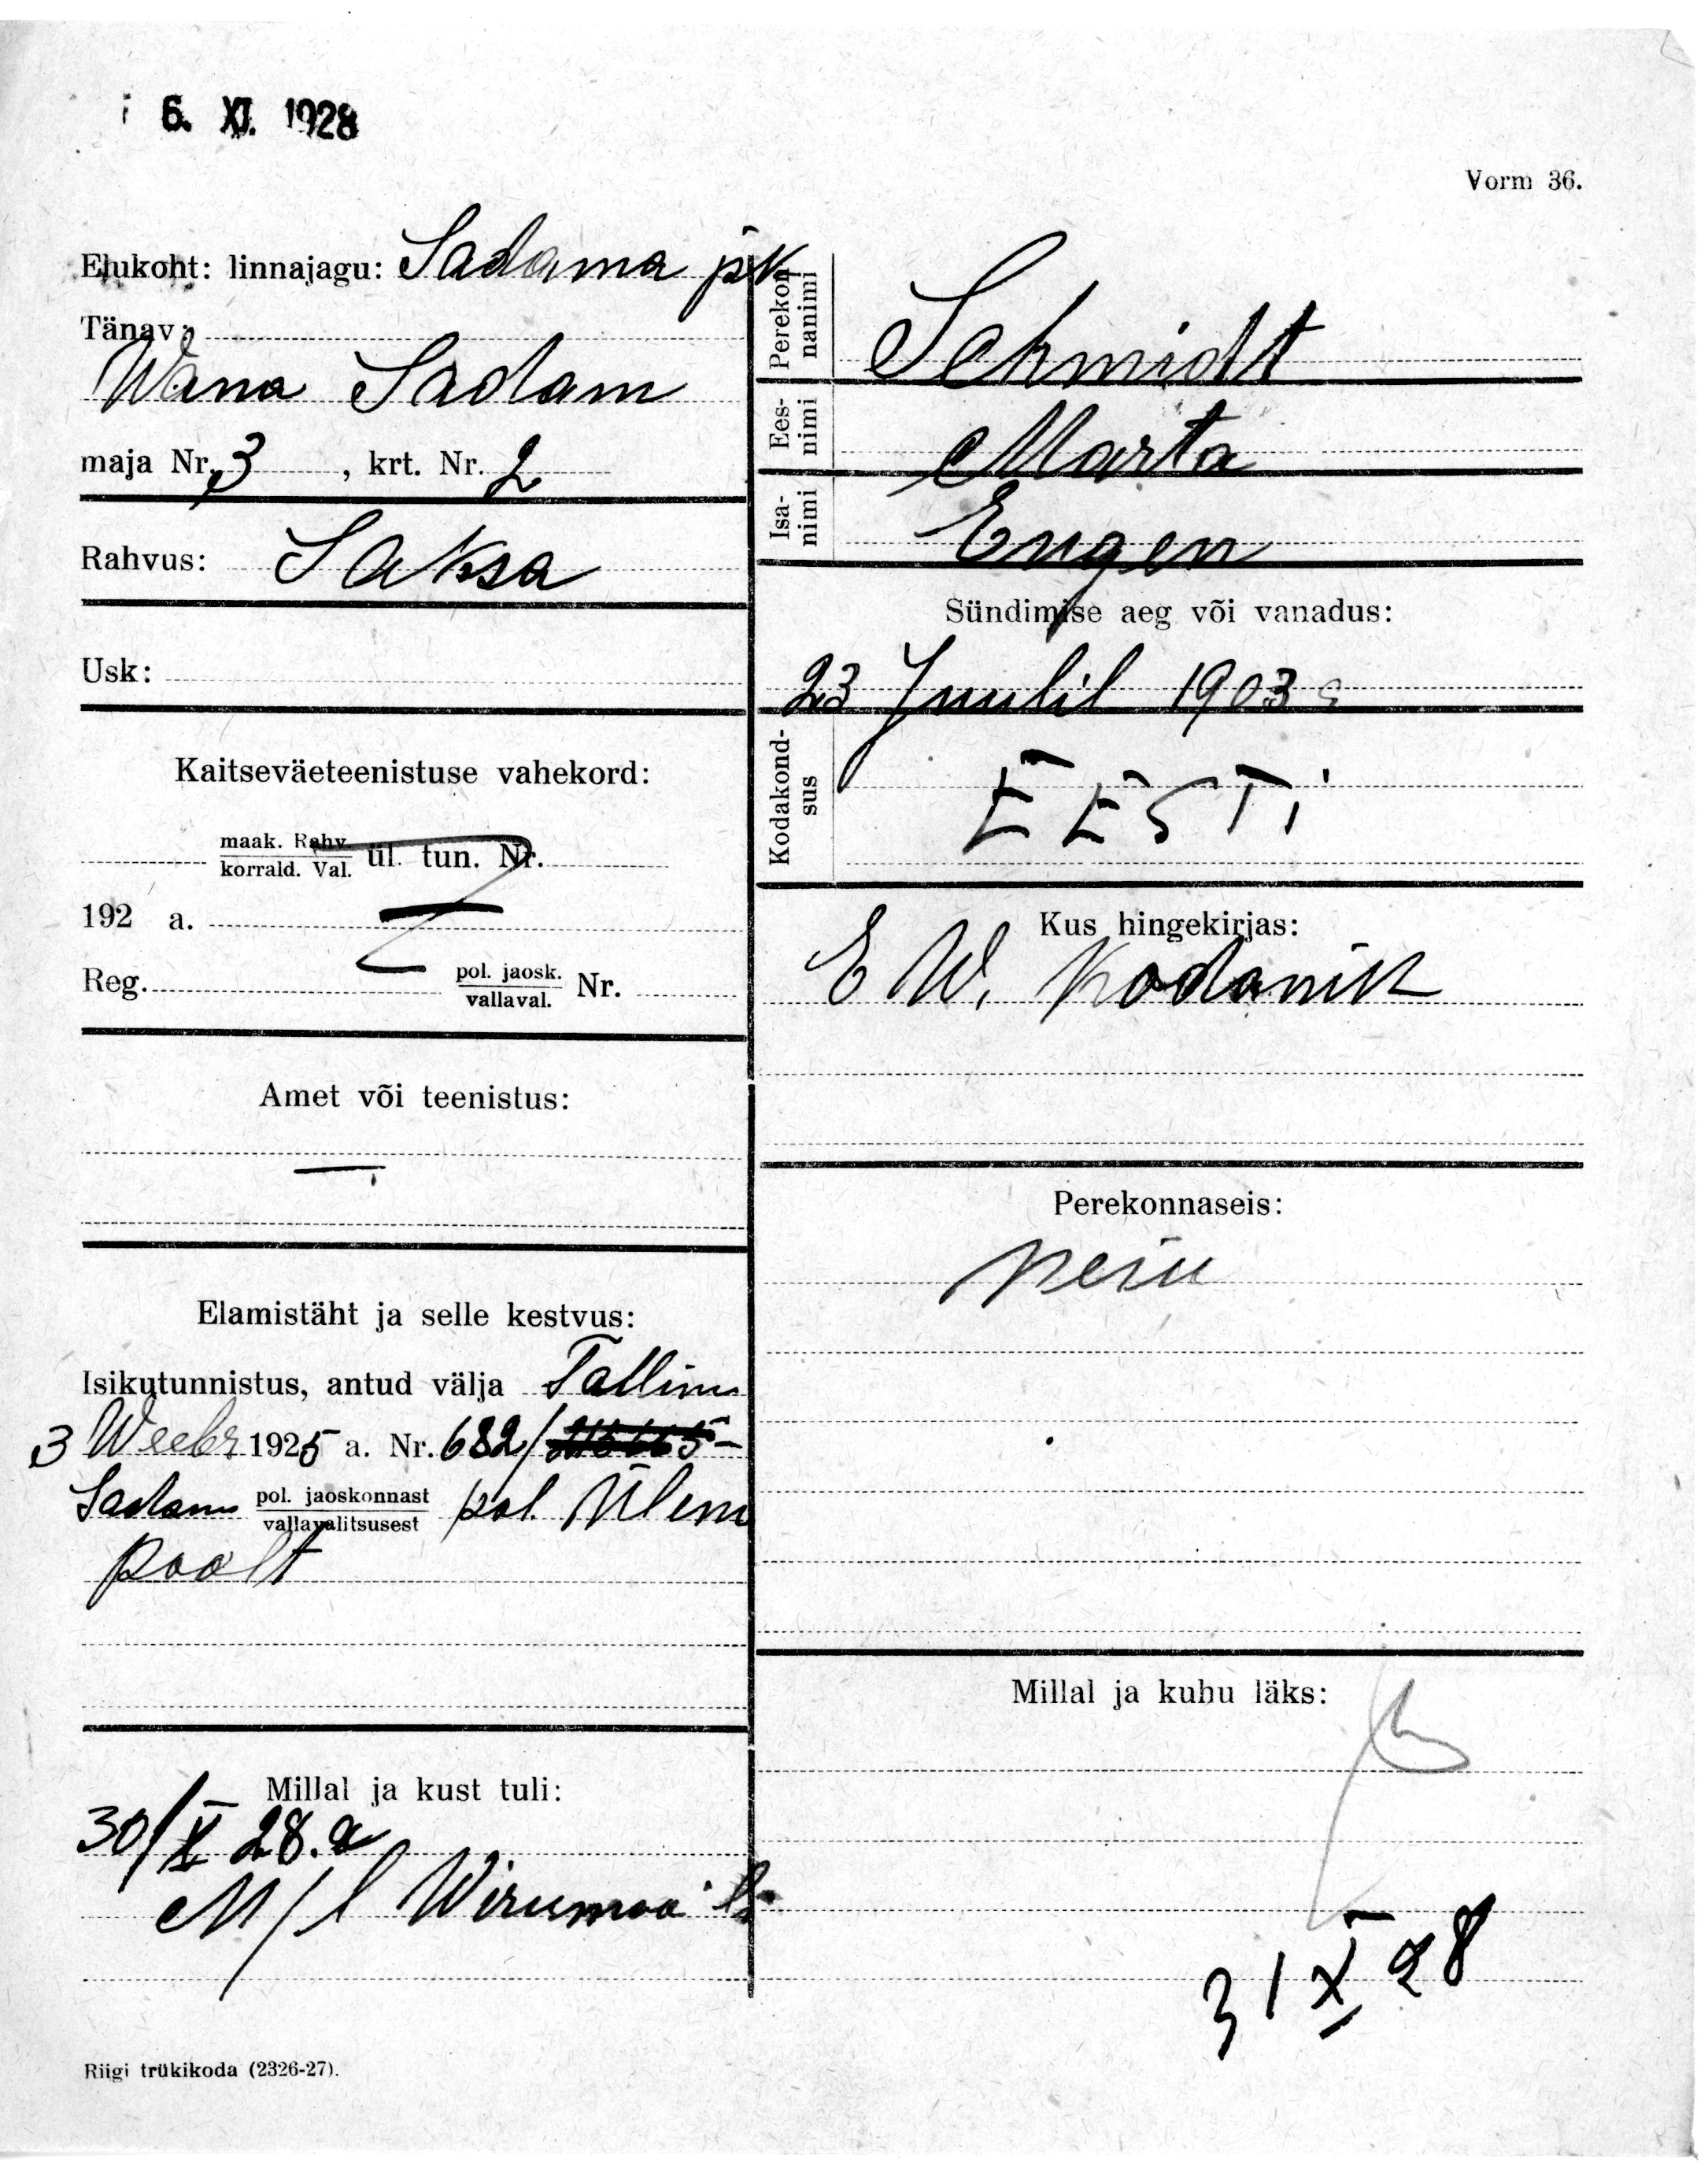 6. XI. 1928
Vorm 36.
Elukoht: linnajagu: Sadama jsk
Tänav:
Wana Sadam
maja Nr. 3, krt. Nr. 2
Rahvus: Saksa
Usk:
Kaitseväeteenistuse vahekord:
maak. Rahv.
korrald. Val. ül. tun. Nr.
192 a.
Reg. pol. jaosk.
vallaval. Nr.
Amet või teenistus:
—
Elamistäht ja selle kestvus:
Isikutunnistus, antud välja Tallinn
3 Weebr 1925 a. Nr. 682/
Sadam pol. jaoskonnast
vallavalitsusest pol. Ülem
poolt
Millal ja kust tuli:
30/X 28. a
M/l Wirumaa
Riigi trükikoda (2326-27).
Perekon
nanimi
Schmidt
Ees-
nimi
Marta
Isa-
nimi
Eugen
Sündimise aeg või vanadus:
23 Juulil 1903 a
Kodakond-
sus
EESTi
Kus hingekirjas:
E W. Kodanik
Perekonnaseis:
neiu
Millal ja kuhu läks:
31 X 28